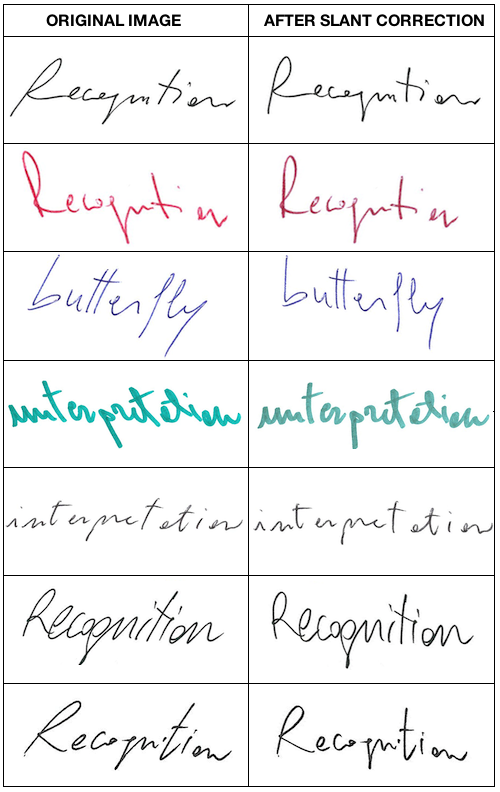 ORIGINAL IMAGE AFTER SLANT CORRECTION
Recognition Recognition
Recognition Recognition
butterfly butterfly
interpretation interpretation
interpretation interpretation
Recognition Recognition
Recognition Recognition